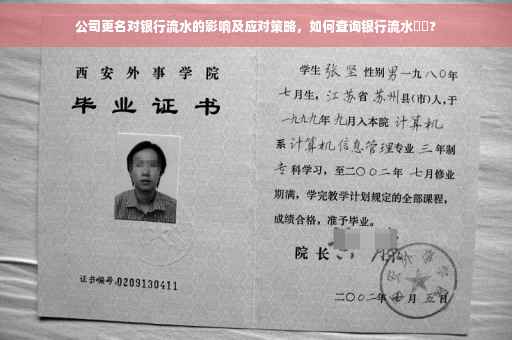 公司更名对银行流水的影响及应对策略，如何查询银行流水？
西安外事学院
毕业证书
证书编号:0209130411
学生 张坚 性别男 一九八〇年
七月生，江苏省 苏州县(市)人，于
一九九九年 九月入本院 计算机
系 计算机信息管理专业 三 年制
专科学习，至二〇〇二年 七月修业
期满，学完教学计划规定的全部课程，
成绩合格，准予毕业。
院长
二〇〇二年 七 月 五 日